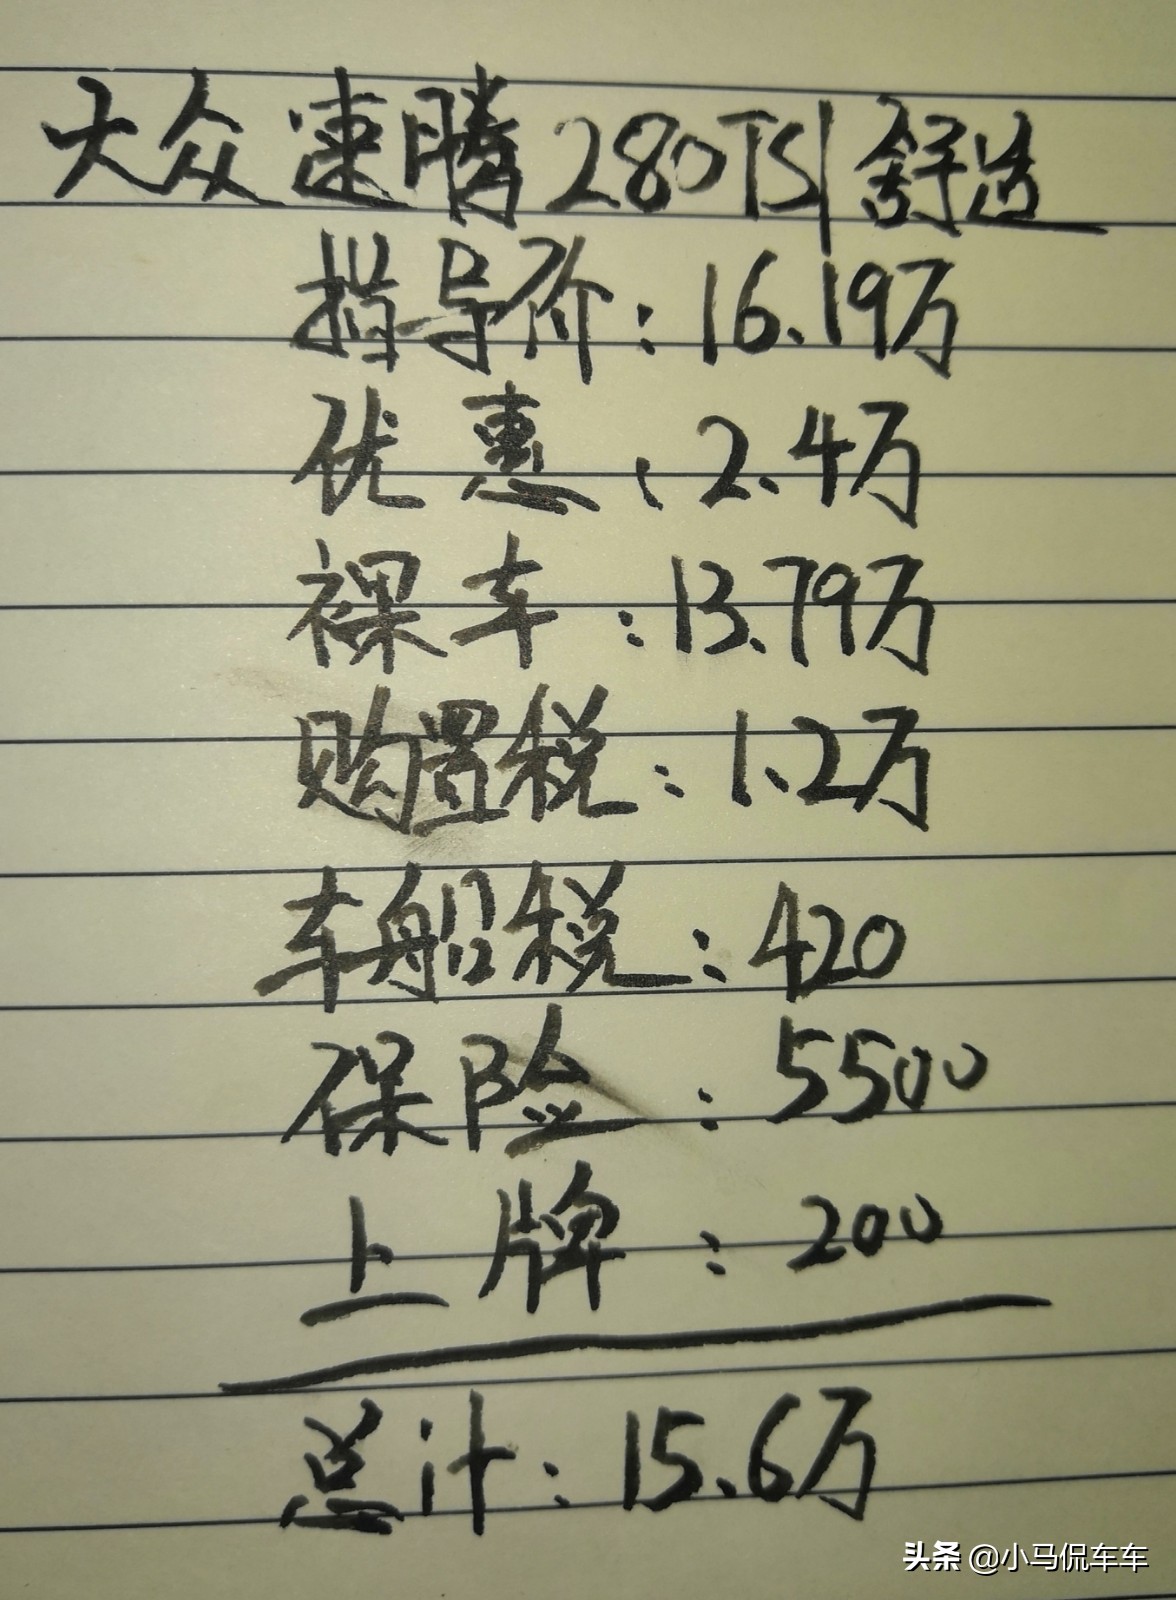 大众速腾280TSI舒适
指导价：16.19万
优惠：2.4万
裸车：13.79万
购置税：1.2万
车船税：420
保险：5500
上牌：200
总计：15.6万
头条 @小马侃车车